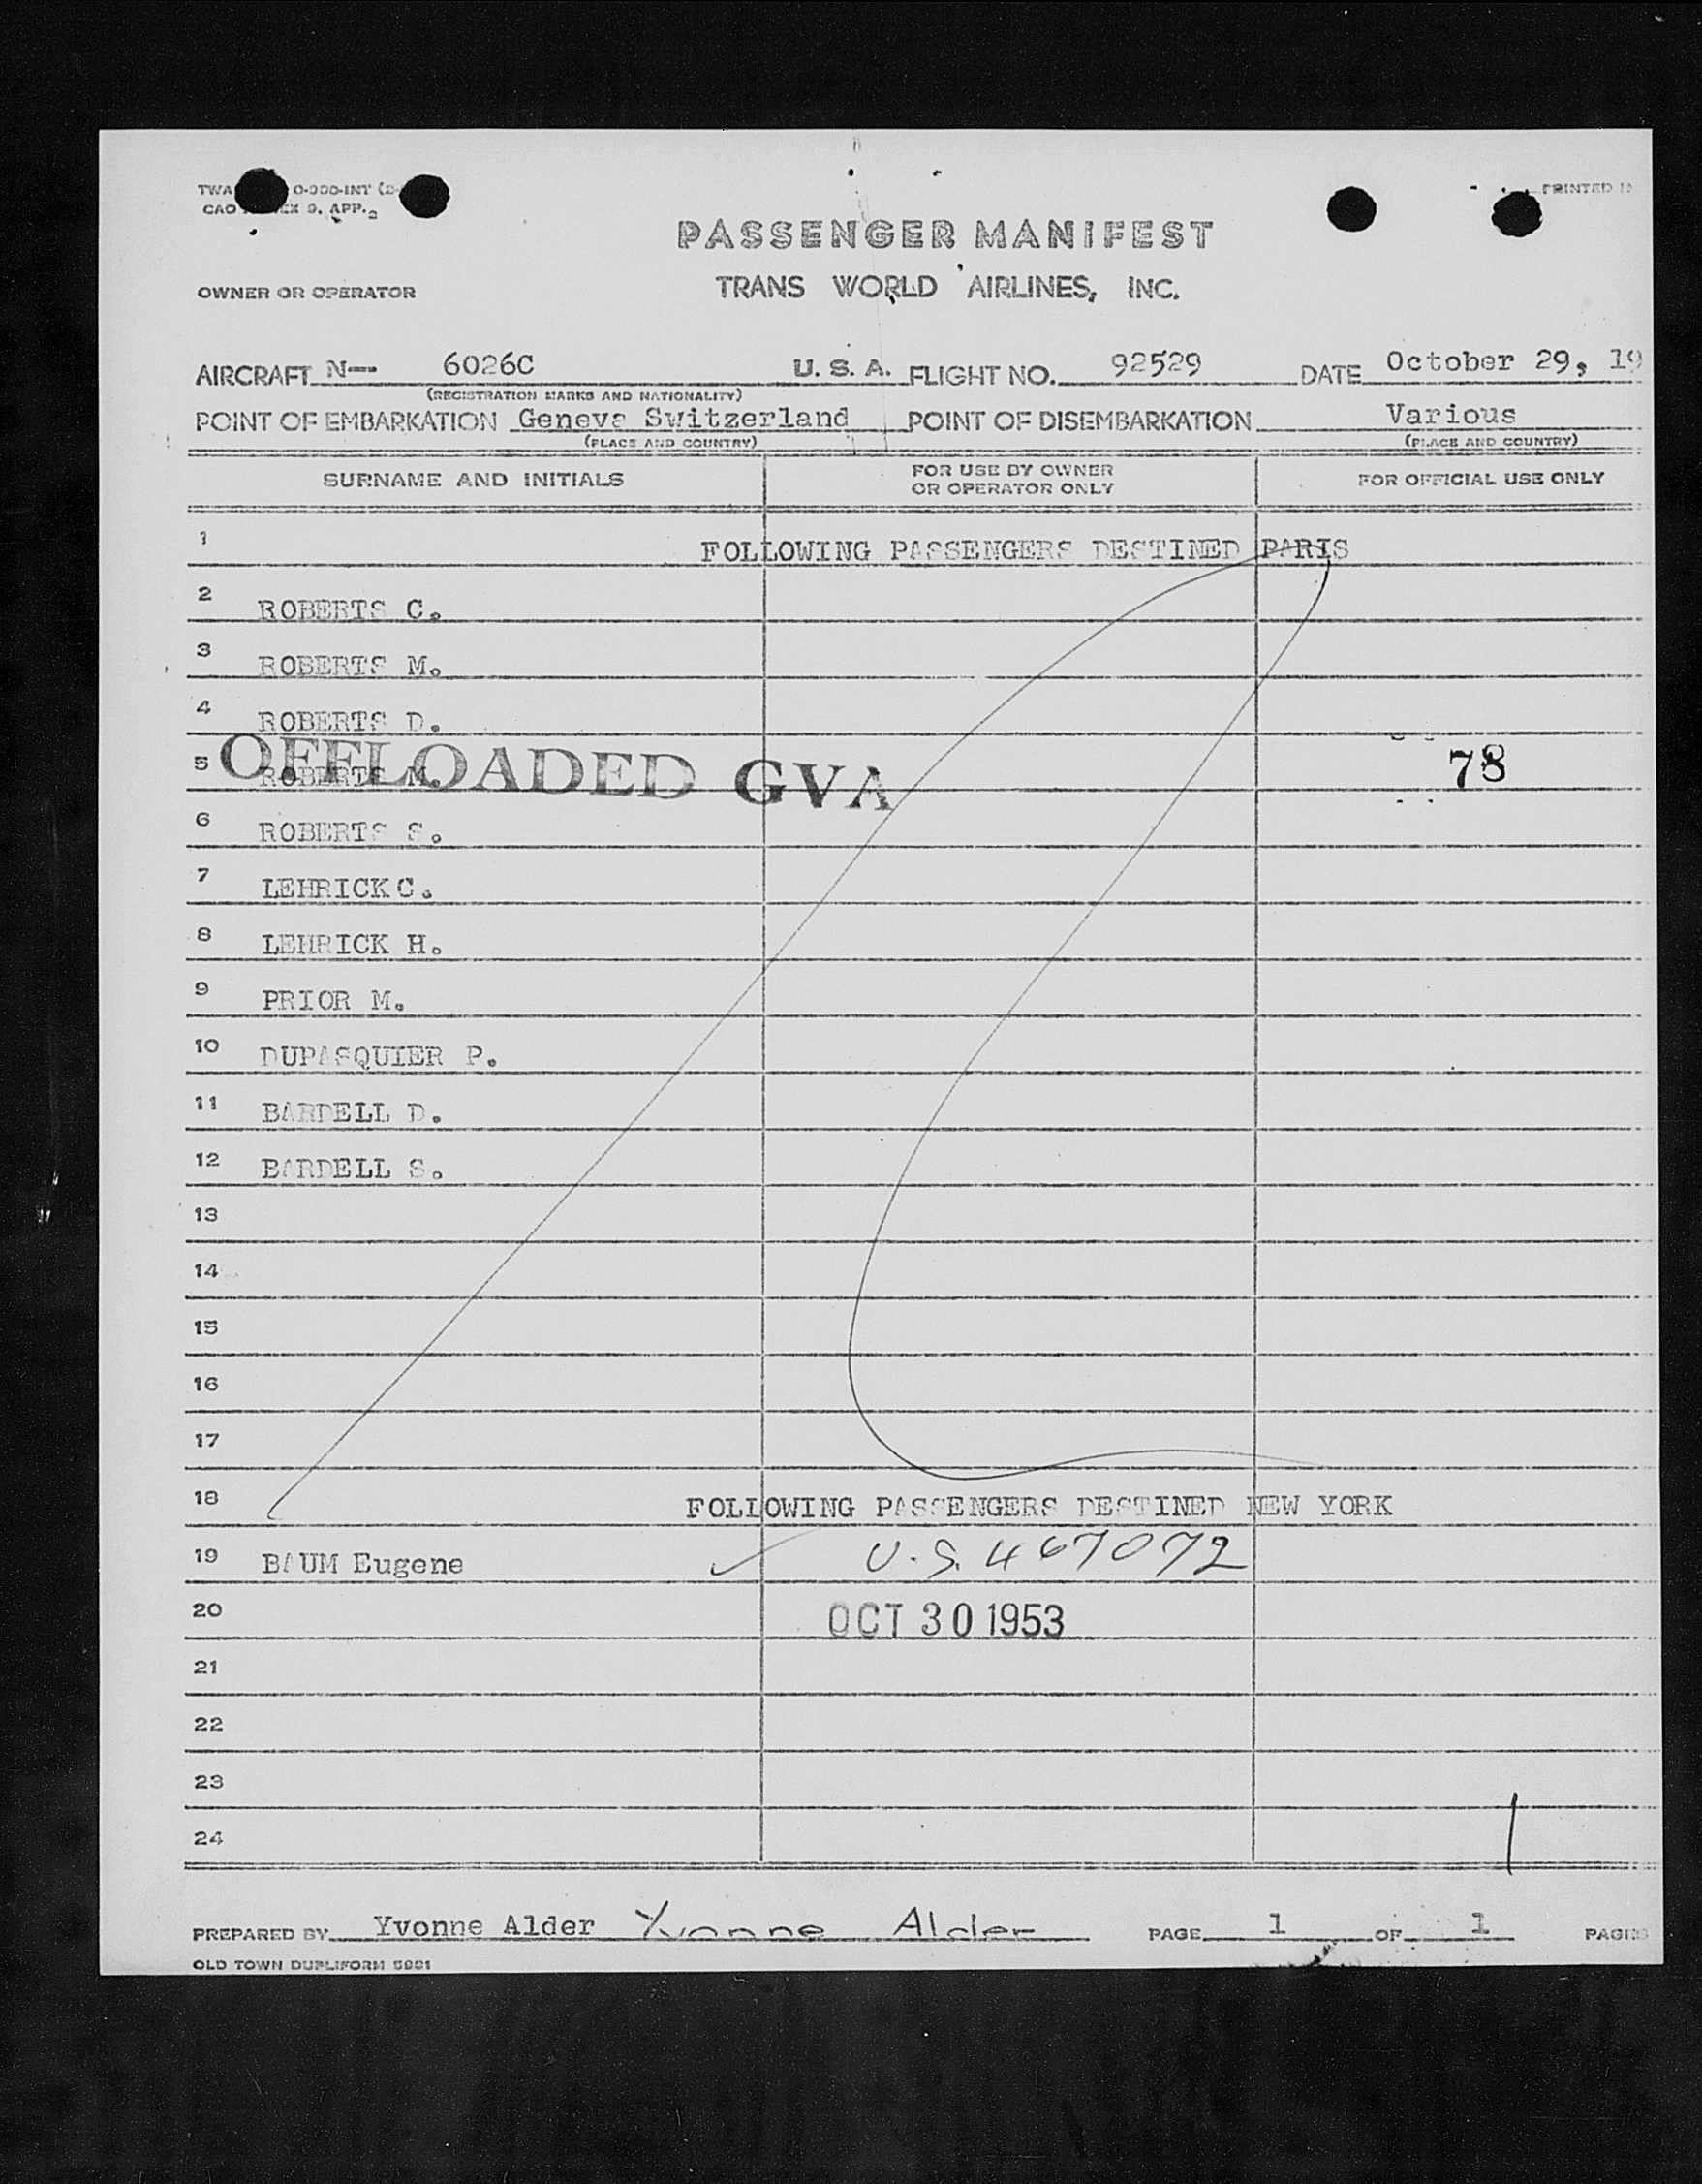 TWA O-300-INT (2-
CAO EX 9. APP. 2
PRINTED IN
PASSENGER MANIFEST
OWNER OR OPERATOR TRANS WORLD AIRLINES, INC.
AIRCRAFT N-- 6026C U. S. A. FLIGHT NO. 92529 DATE October 29, 19
(REGISTRATION MARKS AND NATIONALITY)
POINT OF EMBARKATION Geneva Switzerland POINT OF DISEMBARKATION Various
(PLACE AND COUNTRY) (PLACE AND COUNTRY)
SURNAME AND INITIALS FOR USE BY OWNER OR OPERATOR ONLY FOR OFFICIAL USE ONLY
1 FOLLOWING PASSENGERS DESTINED PARIS
2 ROBERTS C.
3 ROBERTS M.
4 ROBERTS D.
5 ROBERTS M. 78
OFFLOADED GVA
6 ROBERTS S.
7 LEHRICK C.
8 LEHRICK H.
9 PRIOR M.
10 DUPASQUIER P.
11 BARDELL D.
12 BARDELL S.
13
14
15
16
17
18 FOLLOWING PASSENGERS DESTINED NEW YORK
19 BAUM Eugene U.S. 467072
20 OCT 30 1953
21
22
23
24
PREPARED BY Yvonne Alder Yvonne Alder PAGE 1 OF 1 PAGES
OLD TOWN DUPLIFORM